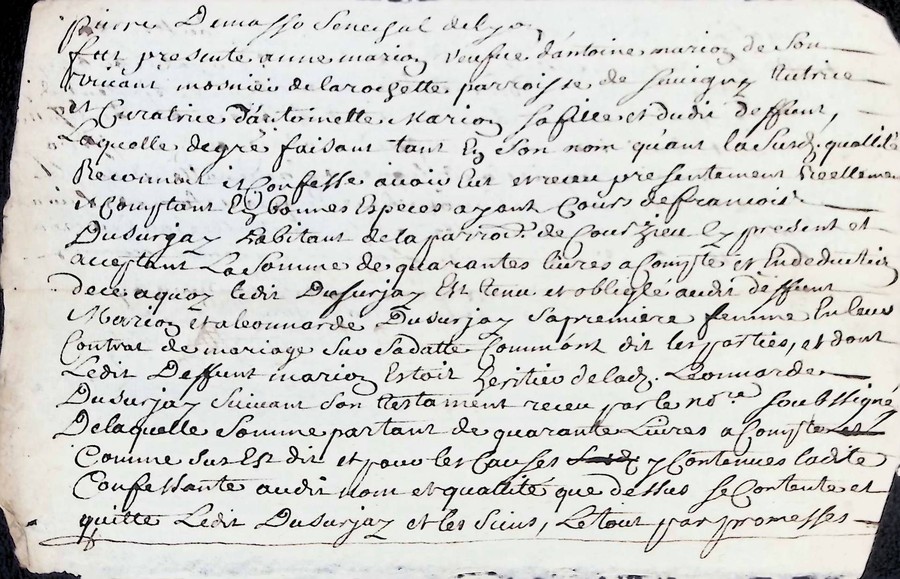 pierre Demasso Senechal de lyon
fut presente anne marion veufve d'antoine marion de son
vivant mosnier de la rochette parroisse de savigny tutrice
et Curatrice d'antoinette Marion sa fille et dudit deffunt,
Laquelle de gré faisant tant En son nom qu'en la susd. quallité
Reconnoit et Confesse avoir Eut et receu presentement Reellement
et Comptant En bonnes Especes ayant Cours de francois
Dusurjay habitant de la parroisse de Courzieu Ey present et
acceptant La somme de quarantes livres a Compte et En deduction
de ce a quoy ledit Dusurjay Est tenu et obligé audit deffunt
Marion et a leonnarde Dusurjay sa premiere femme En leur
Contrat de mariage sur sa datte Comment dit les parties, et dont
Ledit Deffunt marion Estoit heritier de lad. Leonnarde
Dusurjay suivant son testament receu par le nore soubssigné
De laquelle somme partant de quarante Livres a Compte
Comme sus Est dit et pour les Causes y Contenues ladite
Confessante audit nom et quallité que dessus se Contente et
quitte Ledit Dusurjay et les siens, Le tout par promesses